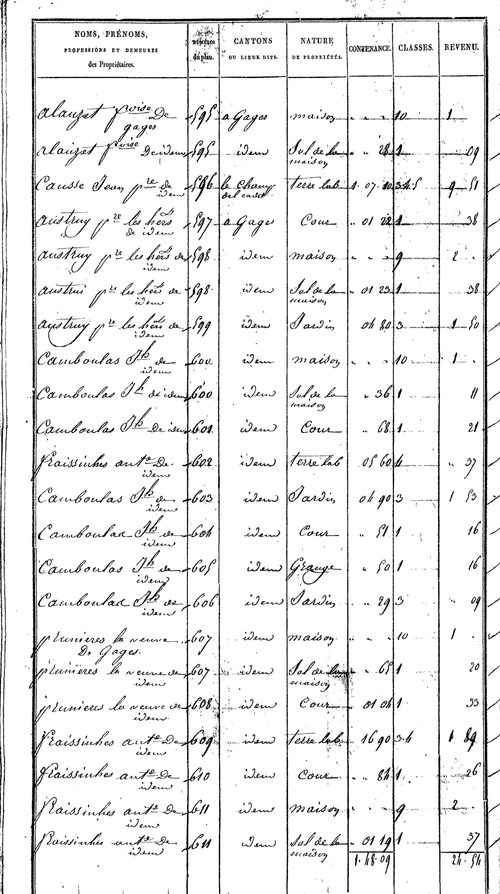 NOMS, PRÉNOMS, PROFESSIONS ET DEMEURES des Propriétaires. NUMÉROS du plan. CANTONS OU LIEUX DITS. NATURE DE PROPRIÉTÉS. CONTENANCE. CLASSES. REVENU.
alauzet fçoise De gages 595 a Gages maison " " " 10 1 "
alauzet fçoise De idem 595 idem Sol de la maison " " 28 1 " 09
Causse Jean pre de idem 596 le Champ terre lab 1 07 10 3.4.5 9 51
austruy pre les hers de idem 597 a Gages Cour " 01 22 1 " 38
austruy pre les hers de idem 598 idem maison " " " 9 2 "
austrui pre les hers de idem 598 idem Sol de la maison " 01 23 1 38
austruy pre les hers de idem 599 idem Jardin 04 80 3 1 50
Camboulas Jh de idem 600 idem maison " " " 10 1 "
Camboulas Jh de idem 600 idem Sol de la maison " 36 1 11
Camboulas Jh de idem 601 idem Cour " 68 1 21
fraissinhes ante De idem 602 idem terre lab 05 60 4 " 37
Camboulas Jh de idem 603 idem Jardin 04 90 3 1 53
Camboulas Jh de idem 604 idem Cour " 51 1 16
Camboulas Jh de idem 605 idem Grange " 50 1 16
Camboulas Jh de idem 606 idem Jardin " 29 3 " 09
prunieres la veuve De Gages 607 idem maison " " " 10 1 "
prunieres la veuve de idem 607 idem Sol de la maison " 65 1 20
prunieres la veuve de idem 608 idem Cour 01 04 1 33
fraissinhes ante De idem 609 idem terre lab 16 90 3.4 1 89
fraissinhes ante De idem 610 idem Cour " 84 1 " 26
fraissinhes ante de idem 611 idem maison " " " 9 2 "
fraissinhes ante de idem 611 idem Sol de la maison " 01 19 1 37
1.48.09 24.54